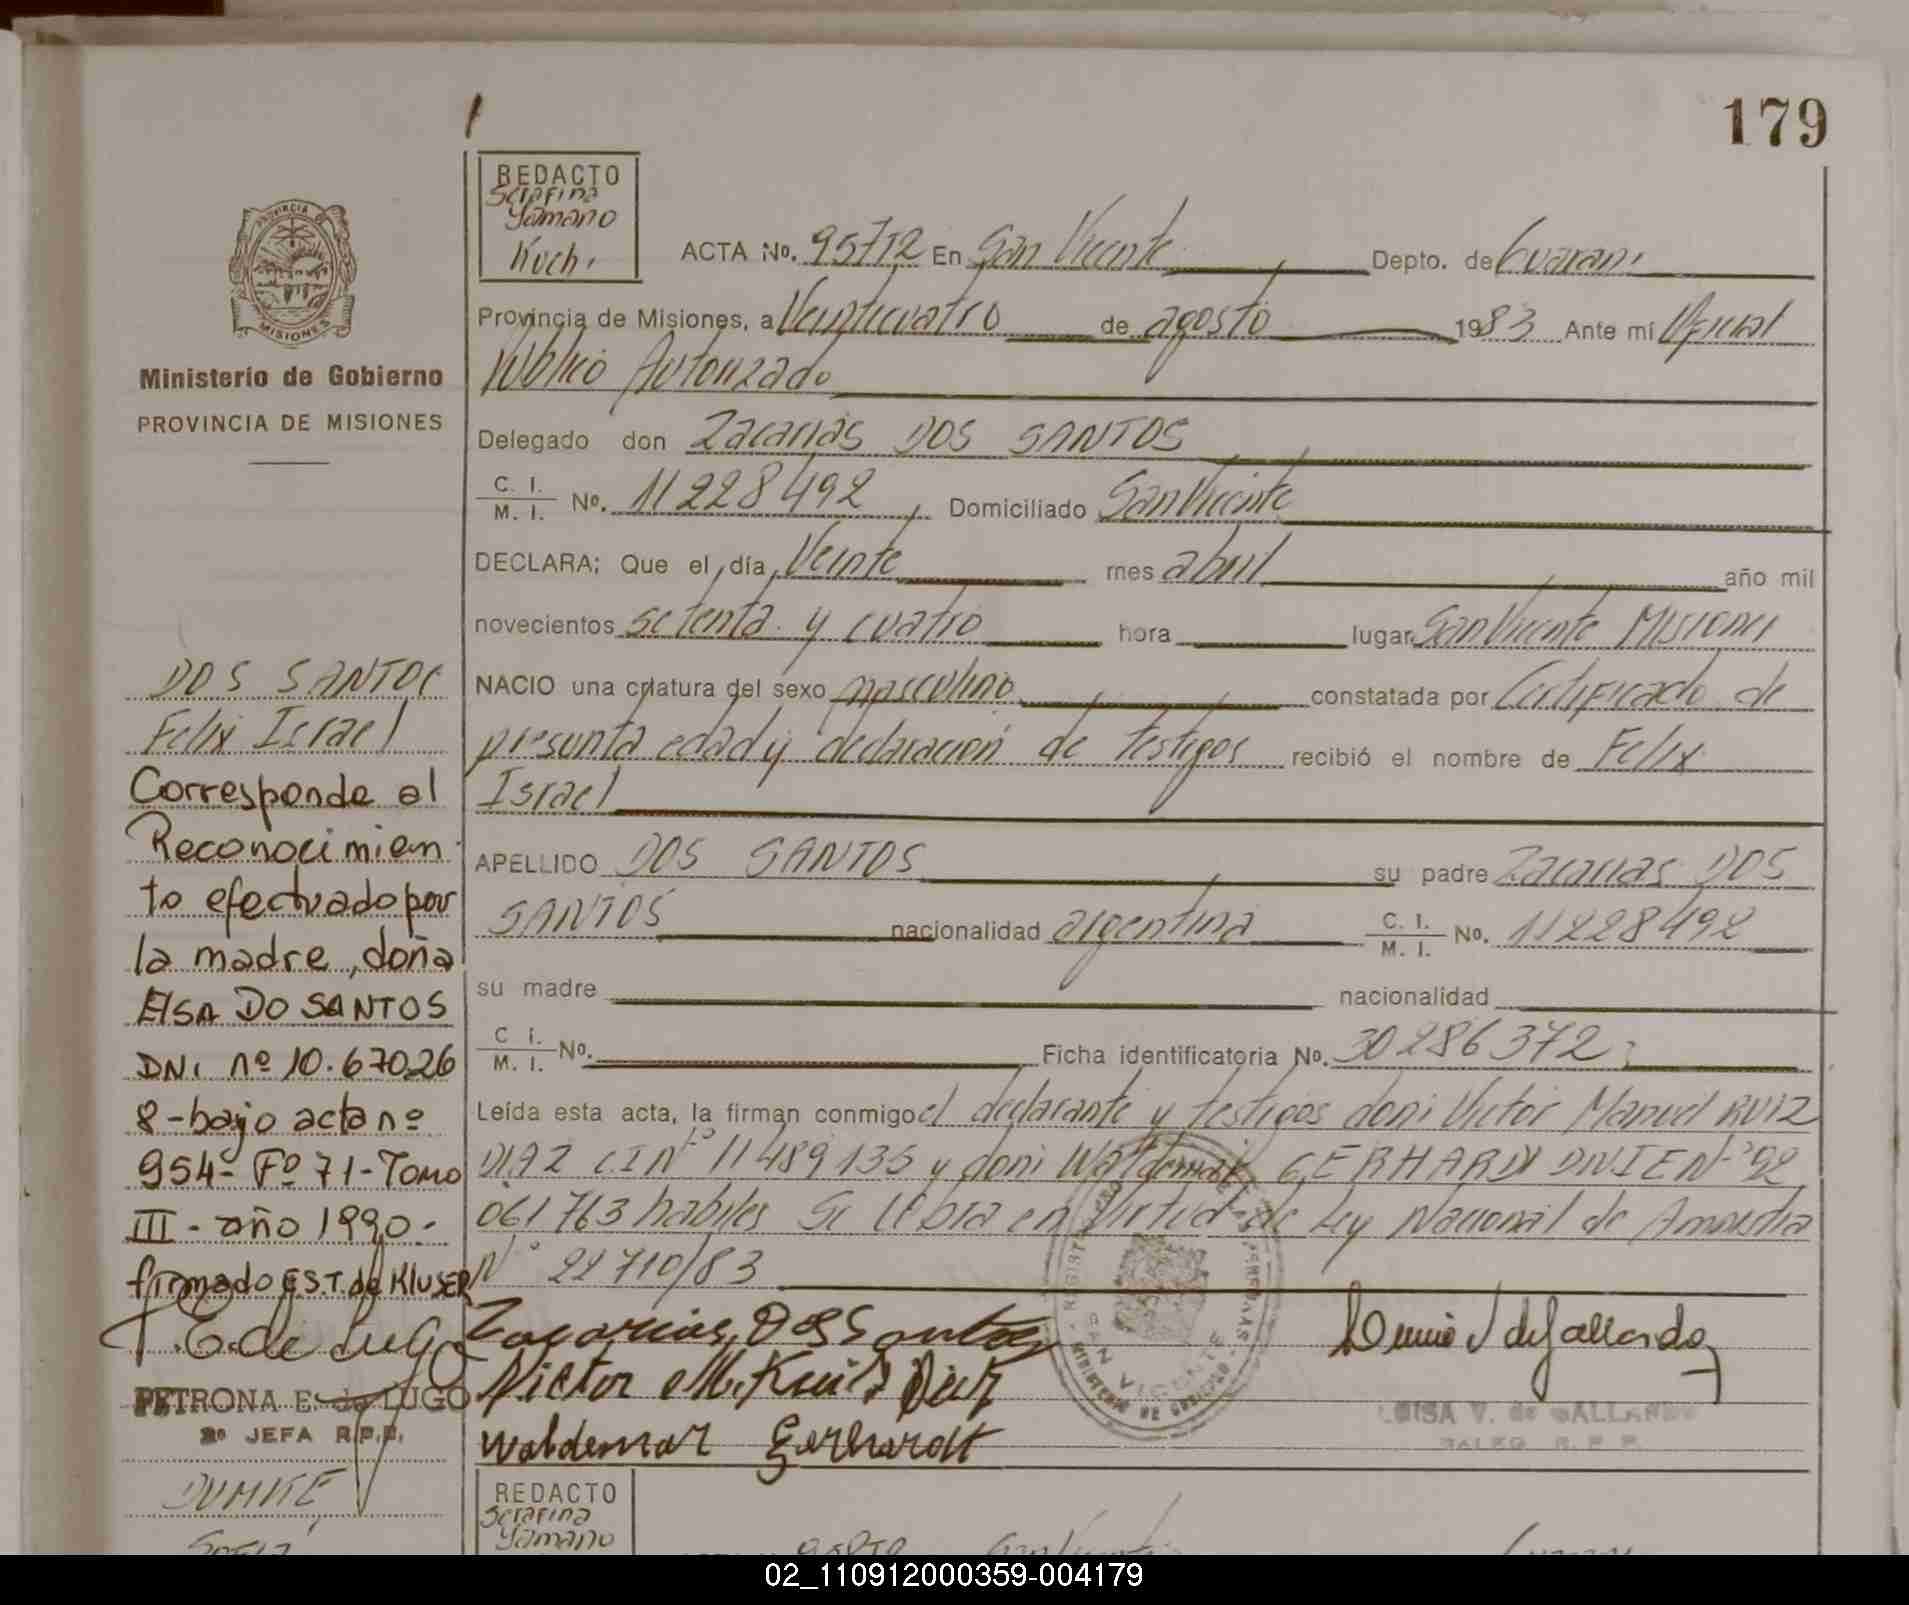 179
REDACTO
Serafina
Yamano
Kuchi
ACTA No. 95712 En San Vicente Depto. de Guarani
Provincia de Misiones, a Veinticuatro de agosto 1983 Ante mi Oficial
Publico Autorizado
Delegado don Zacarias DOS SANTOS
C. I. / M. I. No. 11228492 Domiciliado San Vicente
DECLARA; Que el día Veinte mes abril año mil
novecientos setenta y cuatro hora lugar San Vicente Misiones
NACIO una criatura del sexo masculino constatada por Certificado de
presunta edad y declaración de testigos recibió el nombre de Felix
Israel
APELLIDO DOS SANTOS su padre Zacarias DOS
SANTOS nacionalidad argentina C. I. / M. I. No. 11228492
su madre nacionalidad
C. I. / M. I. No. Ficha identificatoria No. 30286372
Leída esta acta, la firman conmigo el declarante y testigos doni Victor Manuel RUIZ
DIAZ C.I Nº 11489135 y doni Waldemar GERHARDT DNIE Nº 92
061763 habiles Se libra en Virtud de Ley Nacional de Amnistia
Nº 22710/83
Zacarias, Dos Santos
Victor M. Ruis Diaz
Waldemar Gerhardt
de Gallardo
LUISA V. de GALLARDO
R. P. P.
REGISTRO
DE LAS PERSONAS
SAN VICENTE
MINISTERIO DE GOBIERNO
PROVINCIA
MISIONES
Ministerio de Gobierno
PROVINCIA DE MISIONES
DOS SANTOS
Felix Israel
Corresponde al
Reconocimien
to efectuado por
la madre, doña
Elsa DO SANTOS
DNI nº 10.67026
8-bajo acta nº
954- Fº 71- Tomo
III - año 1990.-
firmado E.S.T. de Kluser
P.E. de Lugo
PETRONA E. de LUGO
2º JEFA R.P.P.
DUMKE
REDACTO
Serafina
Yamano
02_110912000359-004179